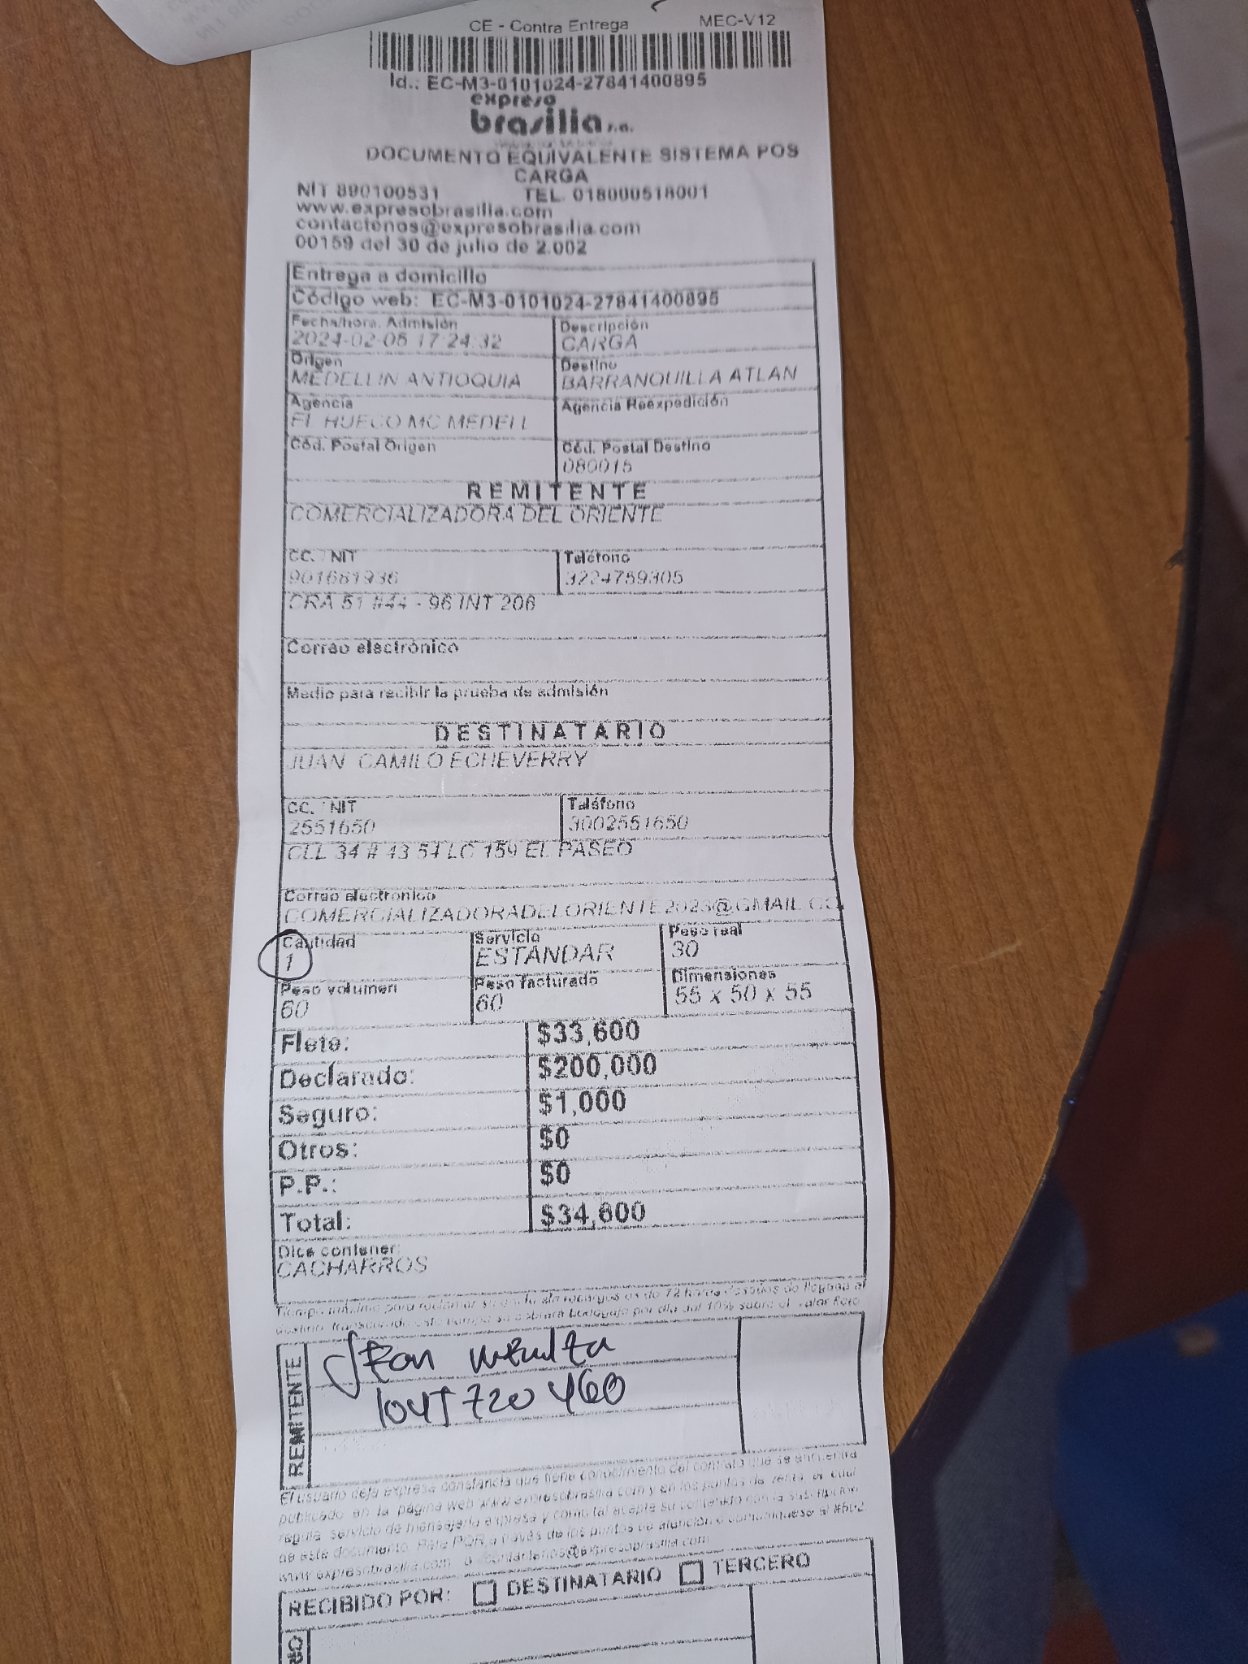 CE - Contra Entrega MEC-V12
Id.: EC-M3-0101024-27841400895
expreso
brasilia s.a.
DOCUMENTO EQUIVALENTE SISTEMA POS
CARGA
NIT 890100531 TEL. 018000518001
www.expresobrasilia.com
contactenos@expresobrasilia.com
00159 del 30 de julio de 2.002
Entrega a domicilio
Código web: EC-M3-0101024-27841400895
Fecha/hora. Admisión Descripción
2024-02-05 17:24:32 CARGA
Origen Destino
MEDELLIN ANTIOQUIA BARRANQUILLA ATLAN
Agencia Agencia Reexpedición
EL HUECO MC MEDELL
Cód. Postal Origen Cód. Postal Destino
080015
REMITENTE
COMERCIALIZADORA DEL ORIENTE
CC. / NIT Teléfono
901681936 3224759305
CRA 51 #44 - 96 INT 206
Correo electrónico
Medio para recibir la prueba de admisión
DESTINATARIO
JUAN CAMILO ECHEVERRY
CC. / NIT Teléfono
2551650 3002551650
CLL 34 # 43 54 LC 159 EL PASEO
Correo electronico
COMERCIALIZADORADELORIENTE2023@GMAIL.CO
Cantidad Servicio Peso real
1 ESTANDAR 30
Peso volumen Peso facturado Dimensiones
60 60 55 x 50 x 55
Flete: $33,600
Declarado: $200,000
Seguro: $1,000
Otros: $0
P.P.: $0
Total: $34,600
Dice contener:
CACHARROS
Tiempo máximo para reclamar su sin recargos es de 72 horas después de llegada al
destino, transcurrido este tiempo se cobrará bodegaje por día del 10% sobre el valor flete
REMITENTE
1045720460
El usuario deja expresa constancia que tiene conocimiento del contrato que se encuentra
publicado en la página web www.expresobrasilia.com y en los puntos de venta, el cual
regula servicio de mensajería expresa y como tal acepta su contenido con la suscripción
de este documento. Para PQR a través de los puntos de atención o comuníquese al #502
www.expresobrasilia.com o contactenos@expresobrasilia.com
RECIBIDO POR: DESTINATARIO TERCERO